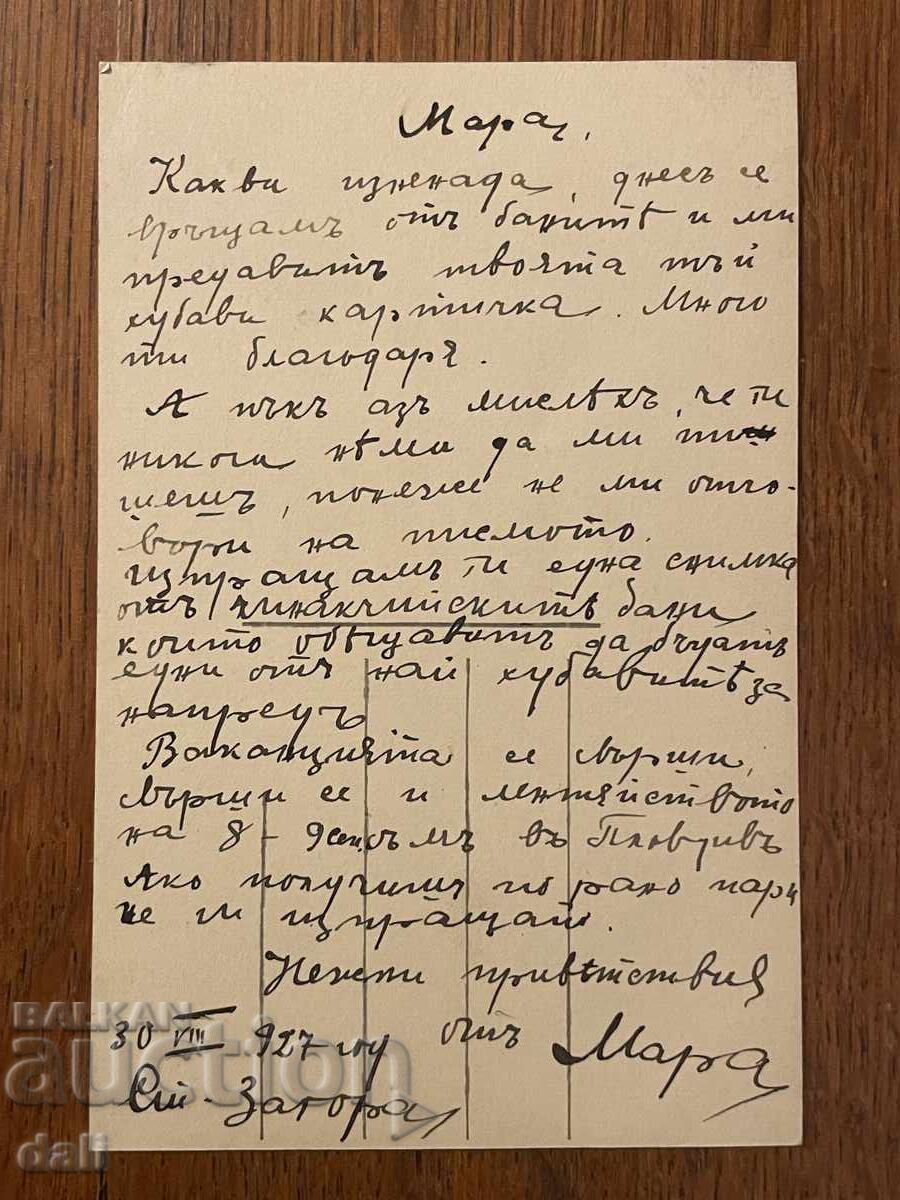 Мара,
Какви изненада, днесъ се
връщамъ отъ банитѣ и ми
предаватъ твоята тъй
хубави картичка. Много
ти благодаря.
А пъкъ азъ мислѣхъ, че ти
никога нѣма да ми пи
шешъ, понеже не ми отго-
вори на писмото.
Изпращамъ ти една снимка
отъ банитѣ бани
които обещаватъ да бъдатъ
едни отъ най хубавитѣ за
напредъ
Ваканцията се свърши,
свърши се и лентяйството
на 8 - 9 сеп. съмъ въ Пловдивъ
Ако получишъ по рано пари
не ги изпращай.
Нежни привѣтствия
отъ Мара
30 VIII 927 год
Ст. Загора
BALKAN
auction
dali